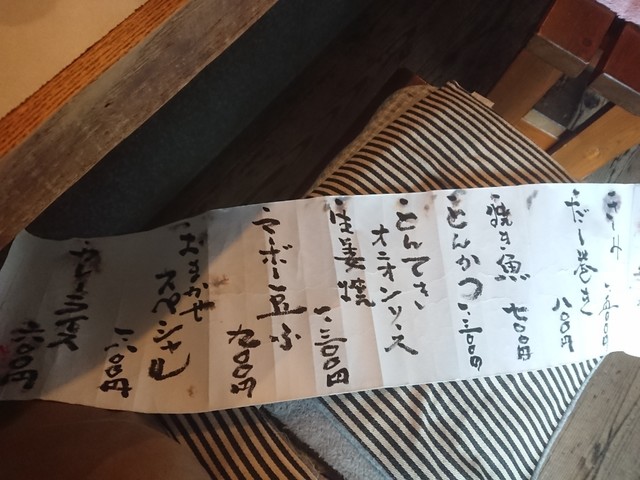 さしみ 一、五〇〇円
だし巻き 八〇〇円
焼き魚 七〇〇円
とんかつ 一、三〇〇円
とんてき
オニオンソース
生姜焼 一、三〇〇円
マーボー豆ふ 九〇〇円
おまかせ
六〇〇円
六〇〇円